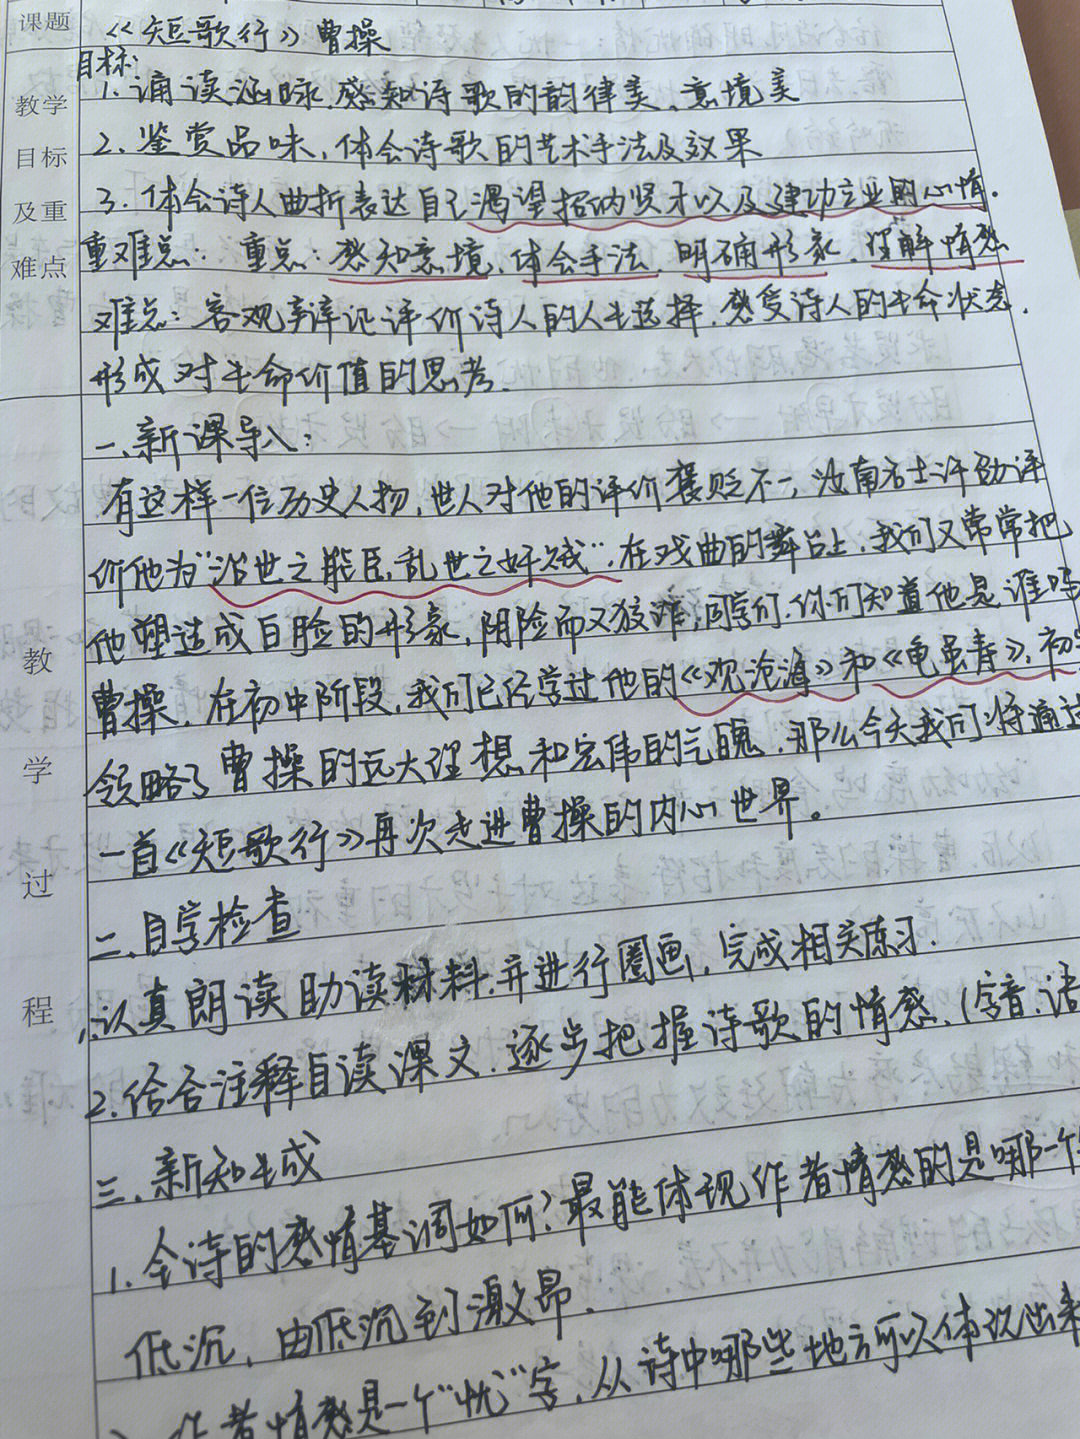 课题
《短歌行》曹操
目标:
1.诵读涵咏,感知诗歌的韵律美、意境美
教学
目标
及重
难点
2.鉴赏品味,体会诗歌的艺术手法及效果
3.体会诗人曲折表达自己渴望招纳贤才以及建功立业的心情.
重难点: 重点:感知意境、体会手法、明确形象、理解情感
难点:客观辩证评价诗人的人生选择,感受诗人的生命状态,
形成对生命价值的思考.
教
学
过
程
一、新课导入:
有这样一位历史人物,世人对他的评价褒贬不一,汝南名士许劭评
价他为"治世之能臣,乱世之奸贼".在戏曲的舞台上,我们又常常把
他塑造成白脸的形象,阴险而又狡诈,同学们,你们知道他是谁吗
曹操,在初中阶段,我们已经学过他的《观沧海》和《龟虽寿》,初
领略了曹操的远大理想和宏伟的气魄,那么今天我们将通过
一首《短歌行》再次走进曹操的内心世界。
二、自学检查
1.认真朗读助读材料,并进行圈画,完成相关练习.
2.结合注释自读课文,逐步把握诗歌的情感、(字音、语
三、新知生成
1.全诗的感情基调如何?最能体现作者情感的是哪一个
低沉,由低沉到激昂.
作者情感是一个"忧"字,从诗中哪些地方可以体现出来